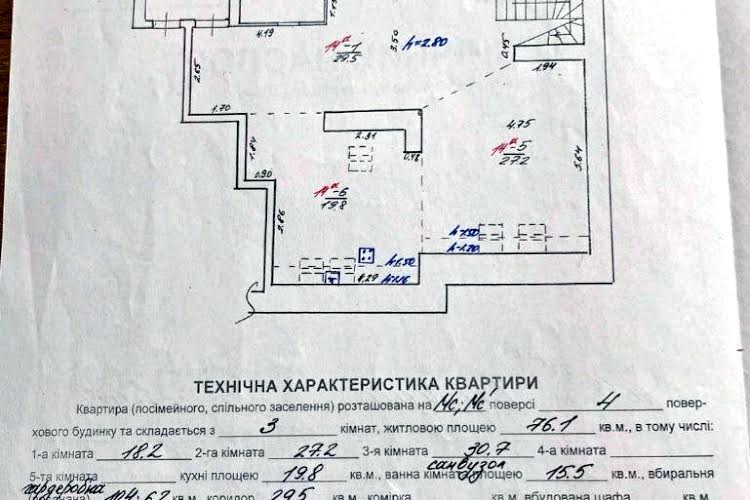 4.19
1.19
14ᵃ-1
29.5
3.50
h=2.80
0.45
1.94
2.65
1.70
2.91
0.48
4.75
14ᵃ-5
27.2
5.64
1.84
0.90
14ᵃ-6
19.8
2.86
h-1.50
h-1.20
h-1.50
4.29
ТЕХНІЧНА ХАРАКТЕРИСТИКА КВАРТИРИ
Квартира (посімейного, спільного заселення) розташована на Мс; Мс поверсі 4 повер-
хового будинку та складається з 3 кімнат, житловою площею 76.1 кв.м., в тому числі:
1-а кімната 18.2 2-га кімната 27.2 3-я кімната 30.7 4-а кімната
санвузол
5-та кімната кухні площею 19.8 кв.м., ванна кімната площею 15.5 кв.м., вбиральня
гардеробка
104.62 кв.м., коридор 29.5 кв.м., комірка кв.м., вбудована шафа